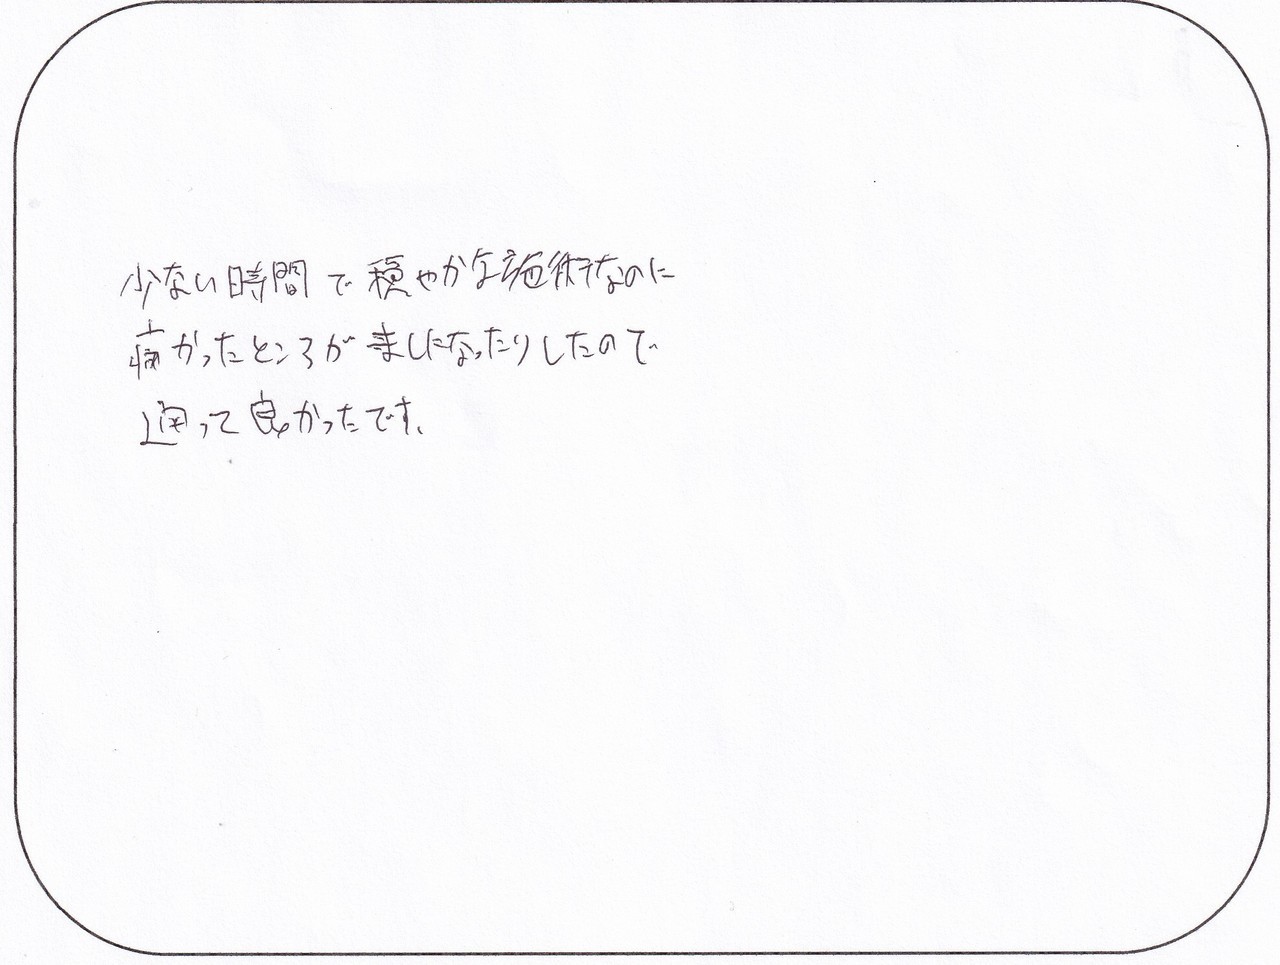 少ない時間で穏やかな施術なのに
痛かったところがましになったりしたので
通って良かったです。